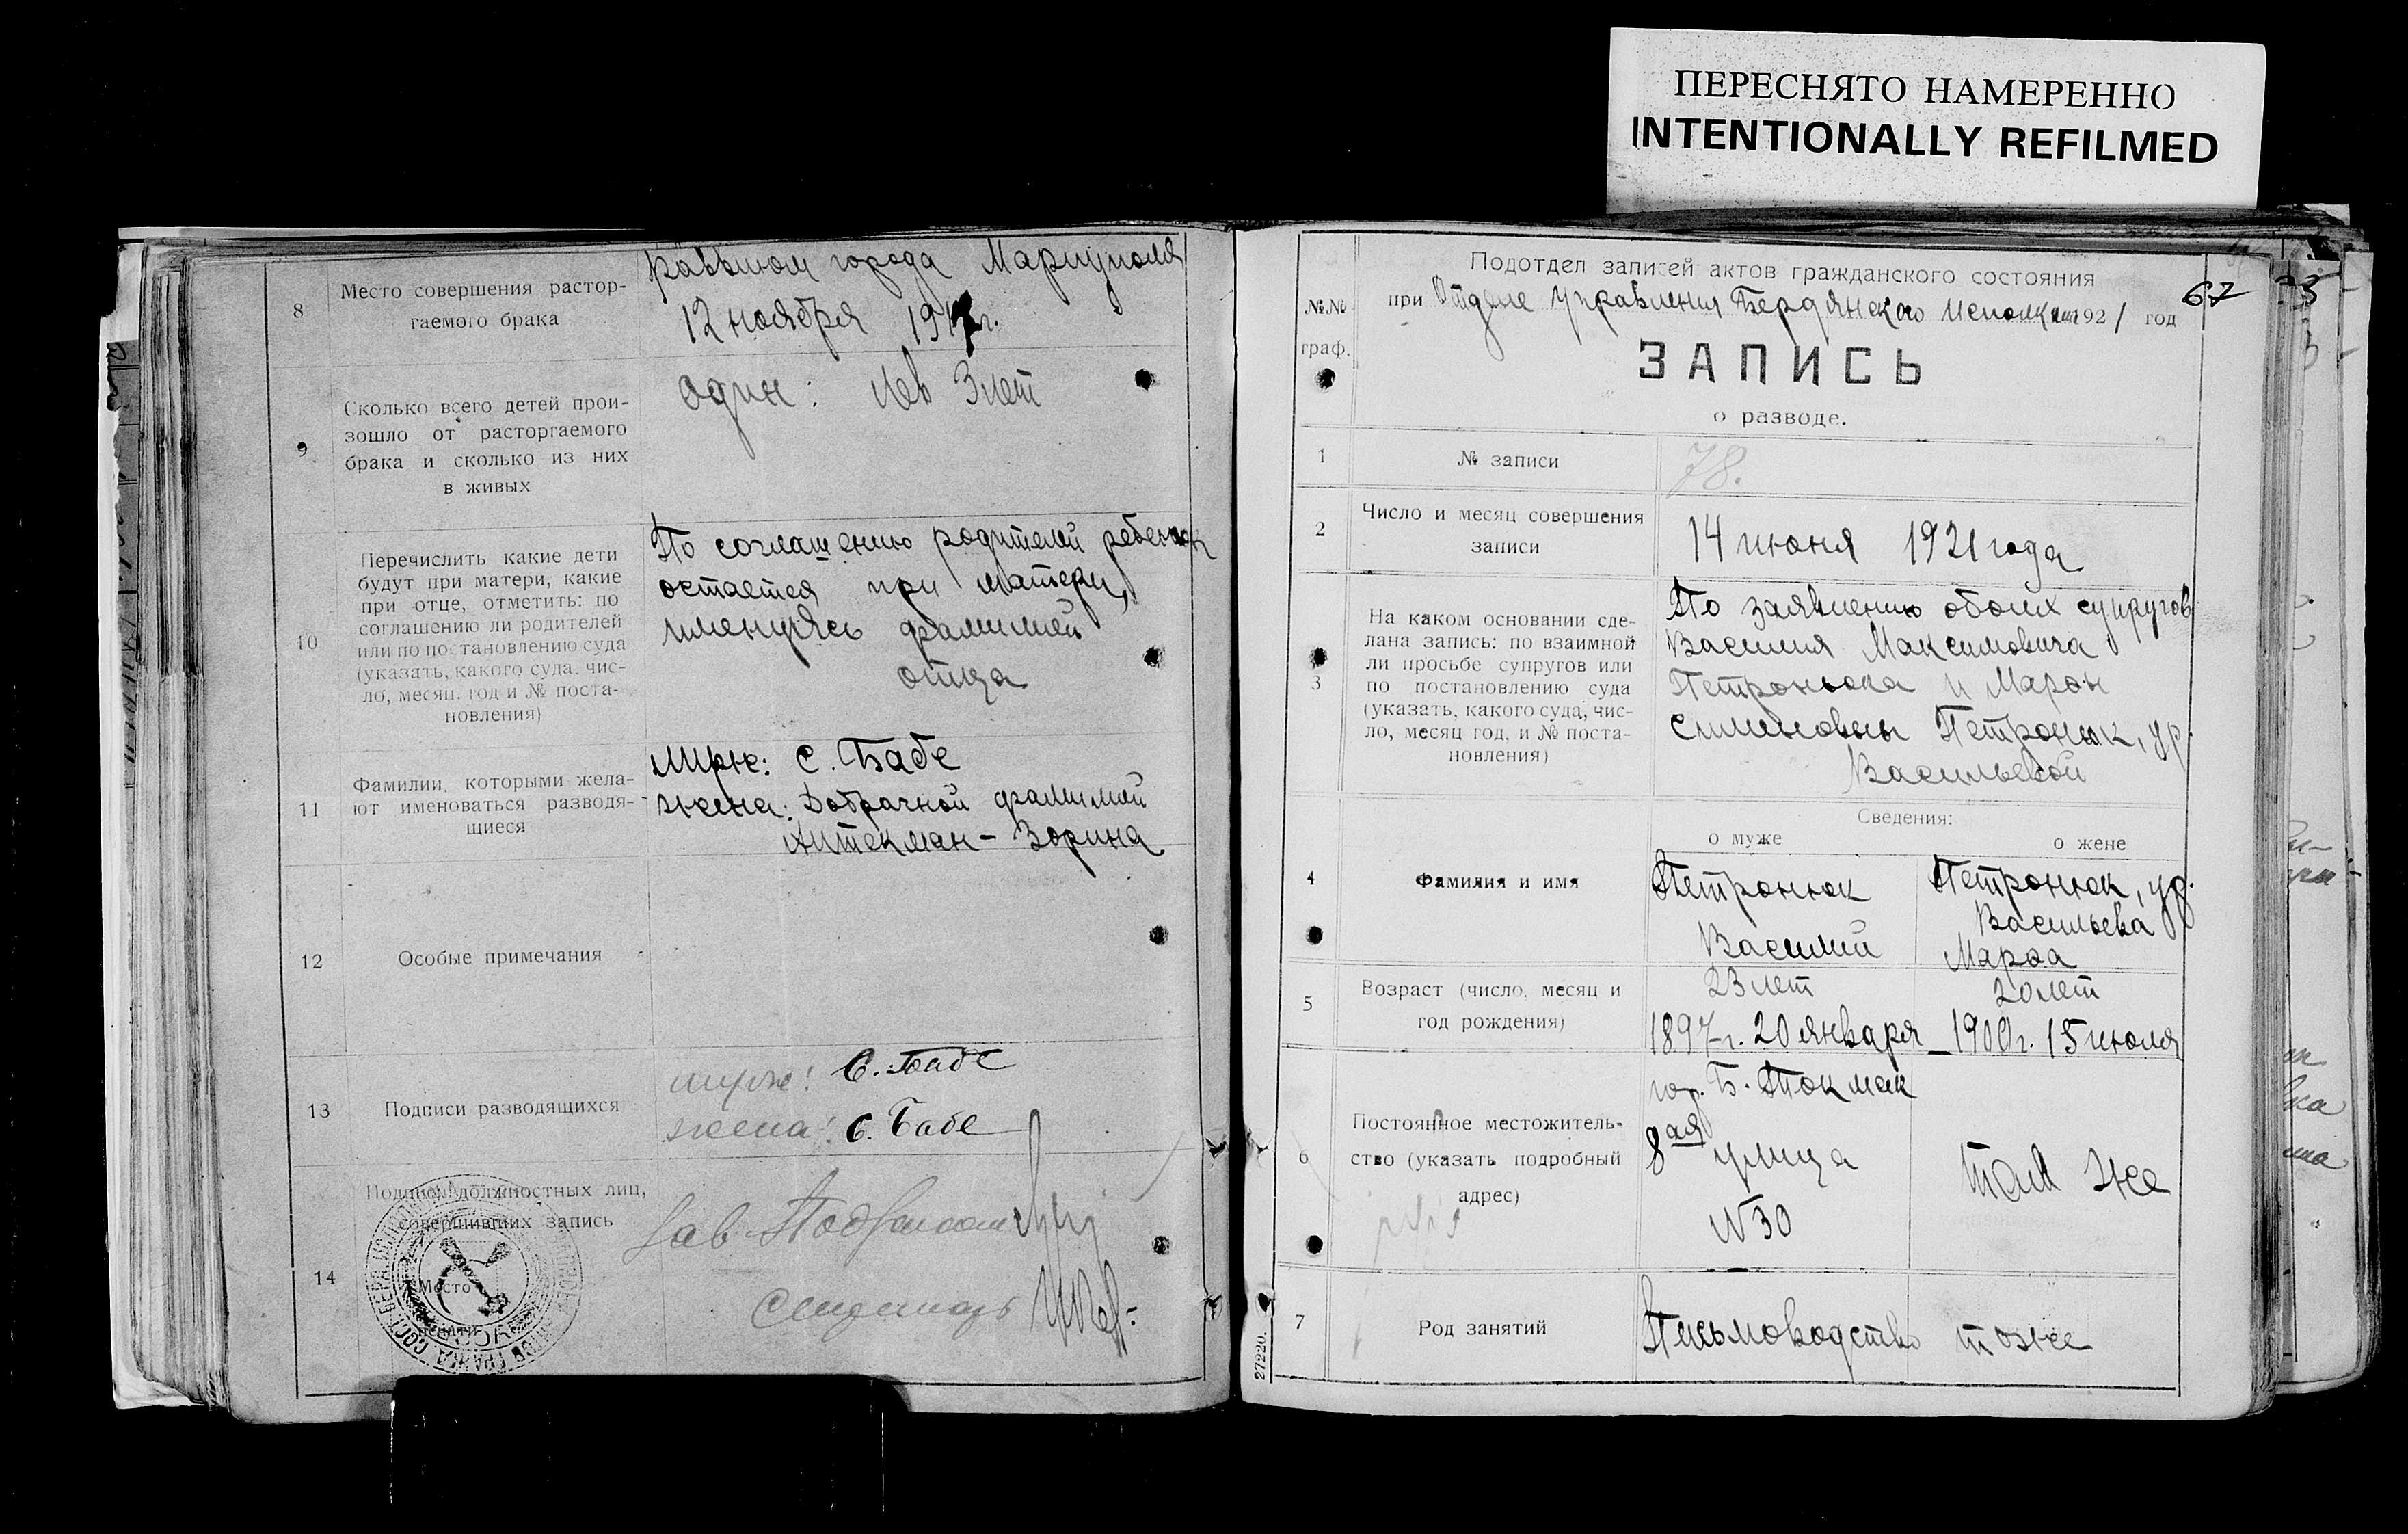 ПЕРЕСНЯТО НАМЕРЕННО
INTENTIONALLY REFILMED
8
Место совершения растор-
гаемого брака
города Мариуполя
12 ноября 1917 г.
9
Сколько всего детей прои-
зошло от расторгаемого
брака и сколько из них
в живых
один: Лев 3 лет
10
Перечислить какие дети
будут при матери, какие
при отце, отметить: по
соглашению ли родителей
или по постановлению суда
(указать, какого суда, чис-
ло, месяц, год и № поста-
новления)
По соглашению родителей ребенок
остается при матери,
именуясь фамилией
отца
11
Фамилии, которыми жела-
ют именоваться разводя-
щиеся
Муж: С. Бабе
жена: Добрачной фамилией
Аптекман – Зорина
12
Особые примечания
13
Подписи разводящихся
муж: С. Бабе
жена: С. Бабе
14
Подписи должностных лиц,
совершивших запись
Место
печати
Зав.
67
№№
граф.
Подотдел записей актов гражданского состояния
при Отделе Управления Бердянского 1921 год
ЗАПИСЬ
о разводе.
1
№ записи
78.
2
Число и месяц совершения
записи
14 июня 1921 года
3
На каком основании сде-
лана запись: по взаимной
ли просьбе супругов или
по постановлению суда
(указать, какого суда, чис-
ло, месяц год, и № поста-
новления)
По заявлению обоих супругов
Василия Максимовича
Петронюка и
Петронюк, ур.
Васильевой
Сведения:
о муже
о жене
4
Фамилия и имя
Петронюк
Василий
Петронюк, ур.
Васильева
5
Возраст (число, месяц и
год рождения)
23 лет
1897 г. 20 января
20 лет
1900 г. 15 июля
6
Постоянное местожитель-
ство (указать подробный
адрес)
гор. Б. Токмак
8ая улица
№ 30
там же
7
Род занятий
Письмоводство
тоже
27220.